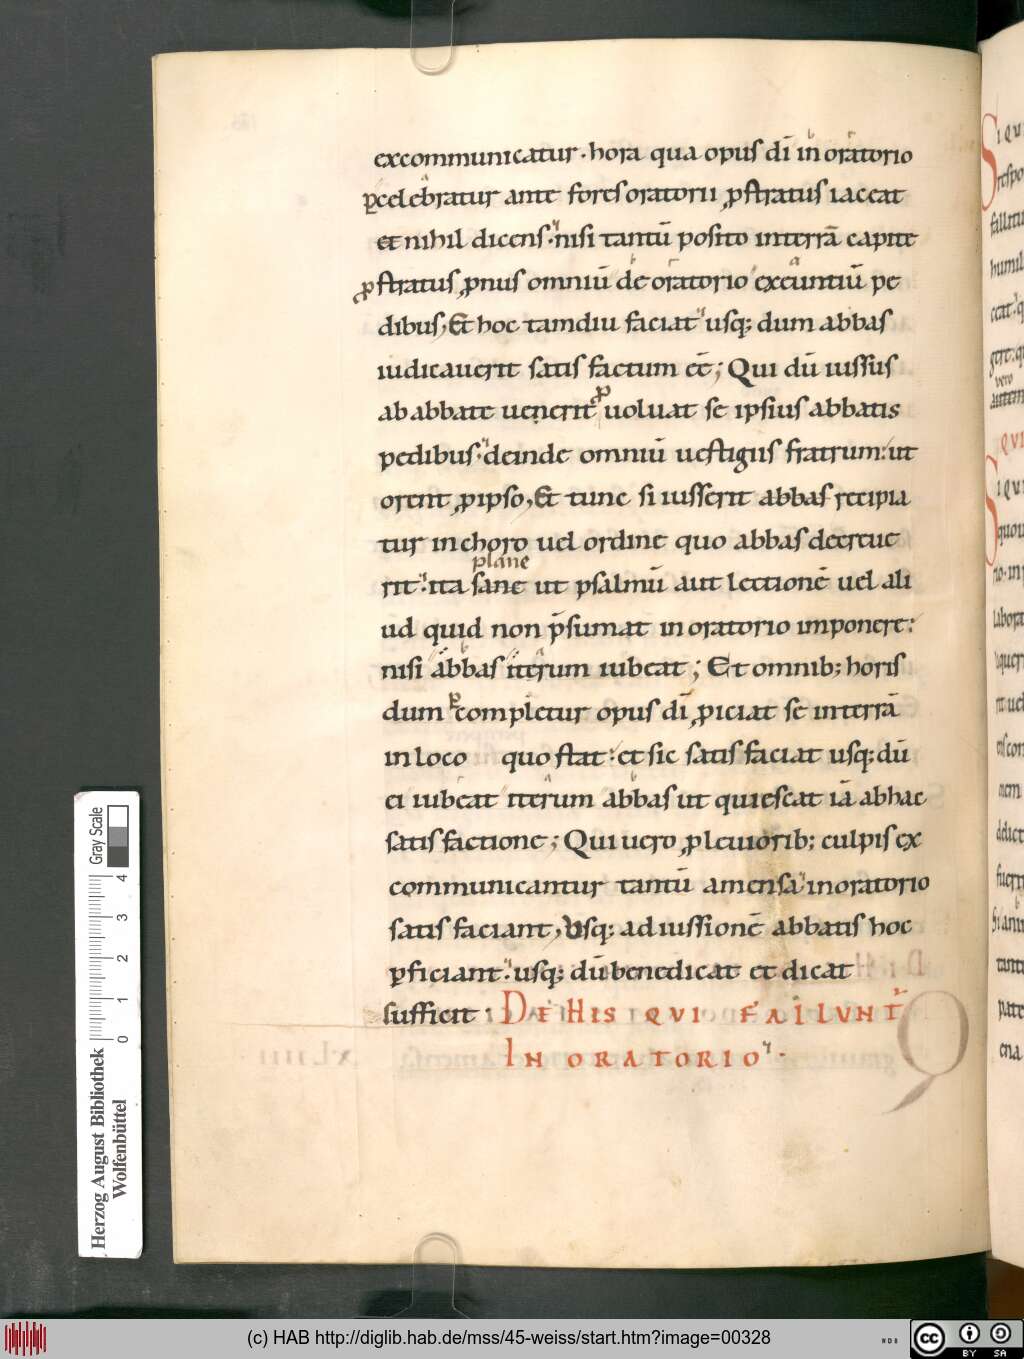 excommunicatur · hora qua opus dī in oratorio
ꝑcelebratur ante fores oratorii ꝓstratus iaceat
et nihil dicens · nisi tantū posito interrā capite
ꝓstratus ꝓnus omniū de oratorio exeuntiū pe
dibus, Et hoc tamdiu faciat usq; dum abbas
iudicauerit satis factum eē; Qui dū iussus
ab abbate uenerit ꝓuoluat se ipsius abbatis
pedibus · deinde omniū uestigiis fratrum: ut
orent ꝓ ipso, Et tunc si iusserit abbas recipia
tur in choro uel ordine quo abbas decreue
plane
rit · ita sane ut psalmū aut lectionē uel ali
ud quid non p̄sumat in oratorio imponere:
nisi abbas iterum iubeat; Et omnib; horis
dum ꝑcompletur opus dī ꝓiciat se interrā
in loco quo stat: et sic satis faciat usq; dū
ei iubeat iterum abbas ut quiescat iā ab hac
satis factione; Qui uero ꝓ leuiorib; culpis ex
communicantur tantū a mensa in oratorio
satis faciant, Usq; ad iussionē abbatis hoc
ꝑficiant · usq; dū benedicat et dicat
sufficit · DE HIS QVI FALLVNT̄
IN ORATORIO ·
Gray Scale
0 1 2 3 4
Herzog August Bibliothek
Wolfenbüttel
(c) HAB http://diglib.hab.de/mss/45-weiss/start.htm?image=00328
WDB
cc BY SA